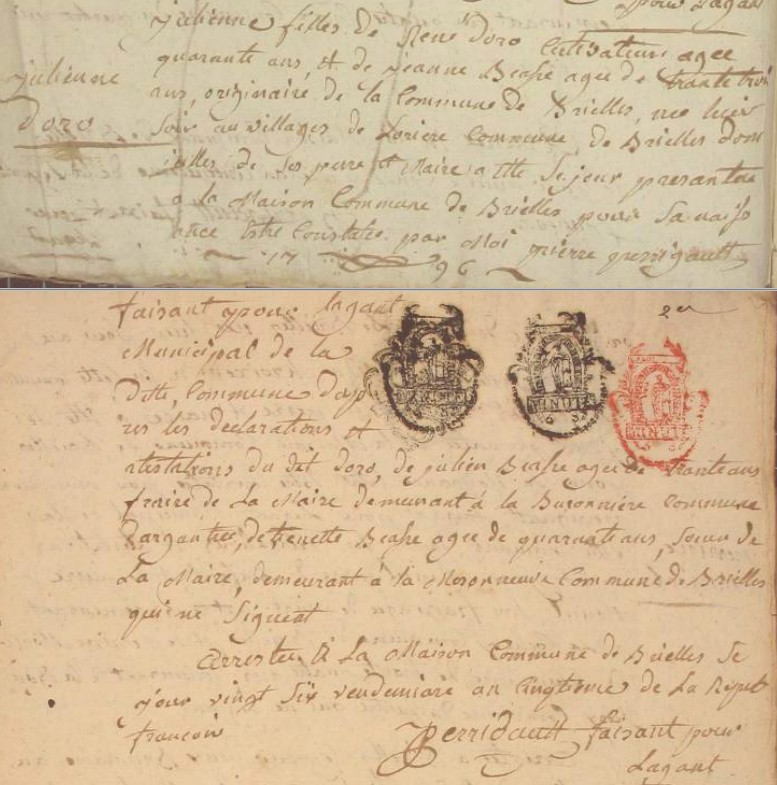 pour Lagant
julienne filles de René doro Cultivateur agee
quarante ans, et de jeanne Beasse agee de trante troi
julienne
doro
ans, originaire de la Commune de Brielles, nee hier
soir au villages de Loriere Commune de Brielles dom
icilles de ses peere et Maire a Ette Se jour presantee
a la Maison Commune de Brielles pour Sa naiss
ance Estre Constatée par Moi pierre perrigault
17 96
faisant pour lagant
Municipal de la
Ditte, Commune dap
res les declarations et
atestations du dit doro, de julien Beasse agee de trante ans
fraire de La Maire demeurant á la Buronniere Commune
Dargantree, de Perrette Beasse agee de quarante ans, Soeur de
La Maire, demeurant á la Commune de Brielles
qui ne Signent
Arrestee A La Maison Commune de Brielles Se
jour vingt Six vendemiare an Cinqtieme de La Repub
francois
Perrigault faisant pour
Lagant